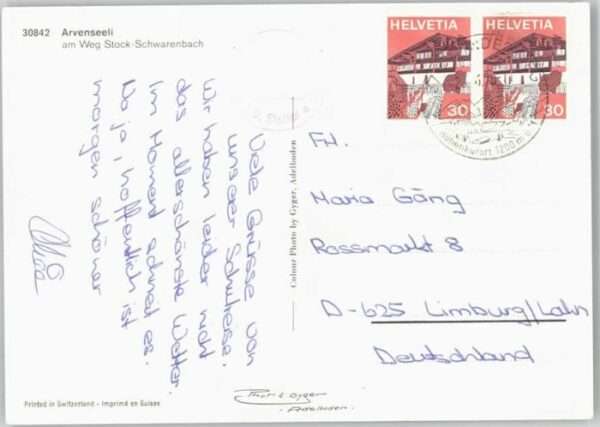 30842 Arvenseeli
am Weg Stock-Schwarenbach
Viele Grüsse von
unserer Schulreise.
Wir haben leider nicht
das allerschönste Wetter.
Im Moment schneit es.
Na ja, hoffentlich ist
morgen schöner
Colour Photo by Gyger, Adelboden
HELVETIA
30
HELVETIA
30
1200 m
Frl.
Maria Gäng
Rossmarkt 8
D-625 Limburg/Lahn
Deutschland
Printed in Switzerland - Imprimé en Suisse
Gyger
Adelboden